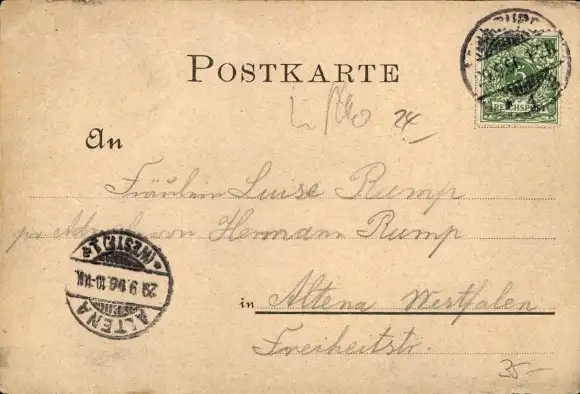 POSTKARTE
REICHSPOST
24,-
An
Fräulein Luise Rump
pr Adr. Herrn Hermann Rump
in Altena Westfalen
Freiheitstr.
ALTENA
29.9.96.10-11V.
(WESTF.)
35-